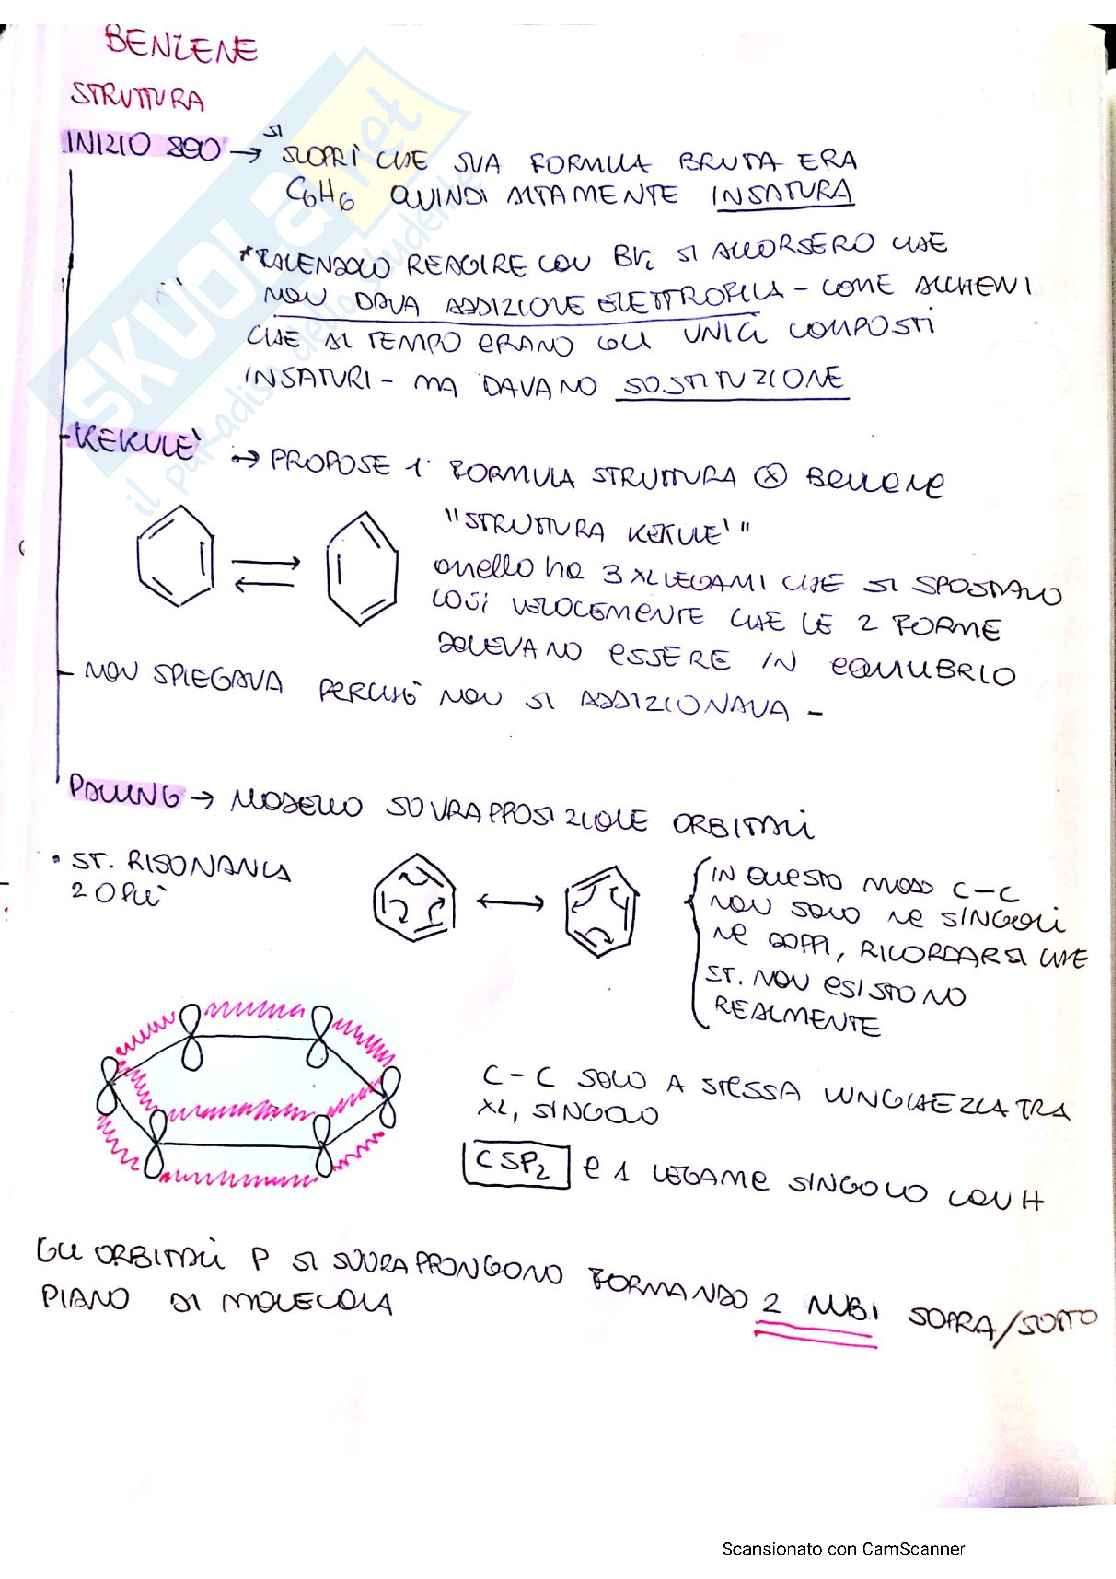 BENZENE
STRUTTURA
INIZIO 800 → SI SCOPRÌ CHE SUA FORMULA BRUTA ERA
C6H6 QUINDI ALTAMENTE INSATURA
*FACENDOLO REAGIRE CON Br2 SI ACCORSERO CHE
NON DAVA ADDIZIONE ELETTROFILA - COME ALCHENI
CHE AL TEMPO ERANO GLI UNICI COMPOSTI
INSATURI - MA DAVANO SOSTITUZIONE
KEKULE' → PROPOSE 1° FORMULA STRUTTURA ⓧ BENZENE
"STRUTTURA KEKULE'"
anello ha 3 XL LEGAMI CHE SI SPOSTANO
COSÌ VELOCEMENTE CHE LE 2 FORME
DOVEVANO ESSERE IN EQUILIBRIO
- NON SPIEGAVA PERCHÉ NON SI ADDIZIONAVA -
PAULING → MODELLO SOVRAPPOSIZIONE ORBITALI
• ST. RISONANZA
2 O PIÙ
IN QUESTO MODO C-C
NON SOLO NE SINGOLI
NE DOPPI, RICORDARSI CHE
ST. NON ESISTONO
REALMENTE
C-C SOLO A STESSA LUNGHEZZA TRA
XL, SINGOLO
CSP2 E 1 LEGAME SINGOLO CON H
GLI ORBITALI P SI SOVRAPPONGONO FORMANDO 2 NUBI SOPRA/SOTTO
PIANO DI MOLECOLA
SKUOLA.net
il paradiso dello studente
Scansionato con CamScanner